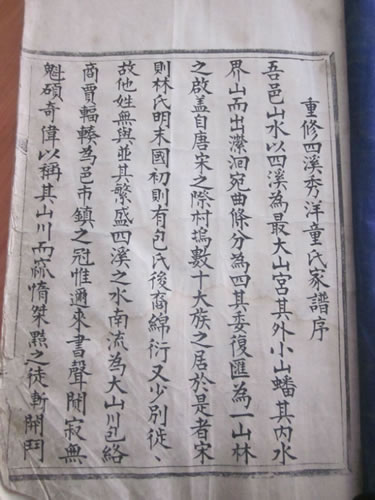 重修四溪秀洋童氏家譜序
吾邑山水以四溪為最大山宮其外小山蟠其內水
界山而出瀠洄宛曲條分為四其委復匯為一山林
之啟蓋自唐宋之際村塢數十大族之居於是者宋
則林氏明末國初則有包氏後裔綿衍又少別徙、
故他姓無與並其繁盛四溪之水南流為大山川包絡
商賈輻輳為邑市鎮之冠惟邇來書聲闃寂無
魁碩奇偉以稱其山川而窳惰桀黠之徒斬開鬥